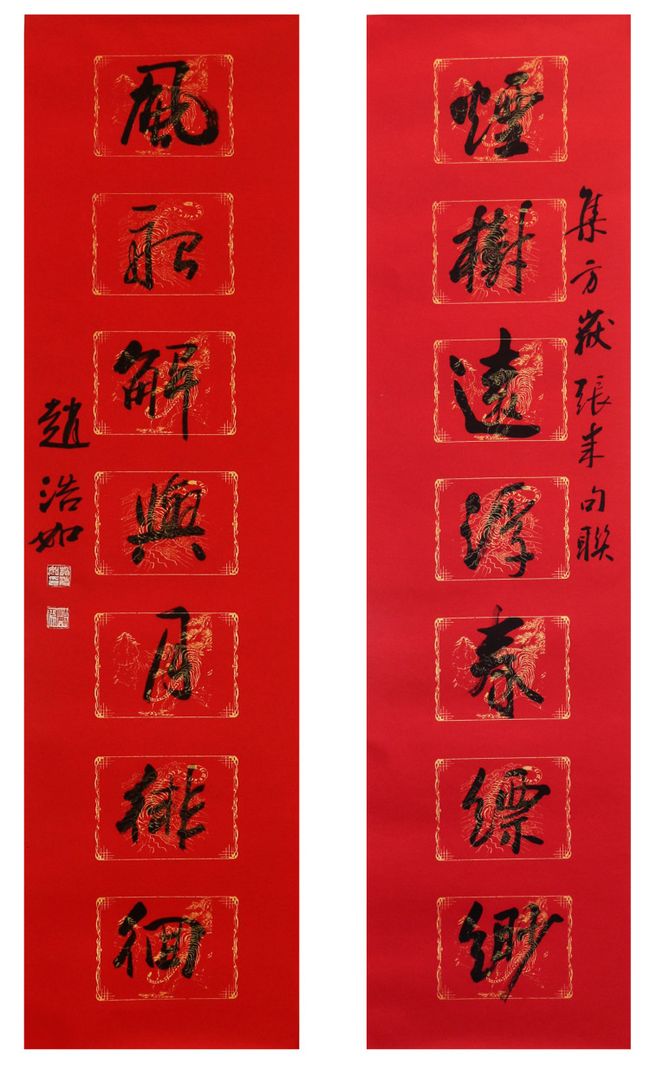 煙樹遠浮春縹緲
集方嶽張耒句聯
風船解與月徘徊
趙浩如